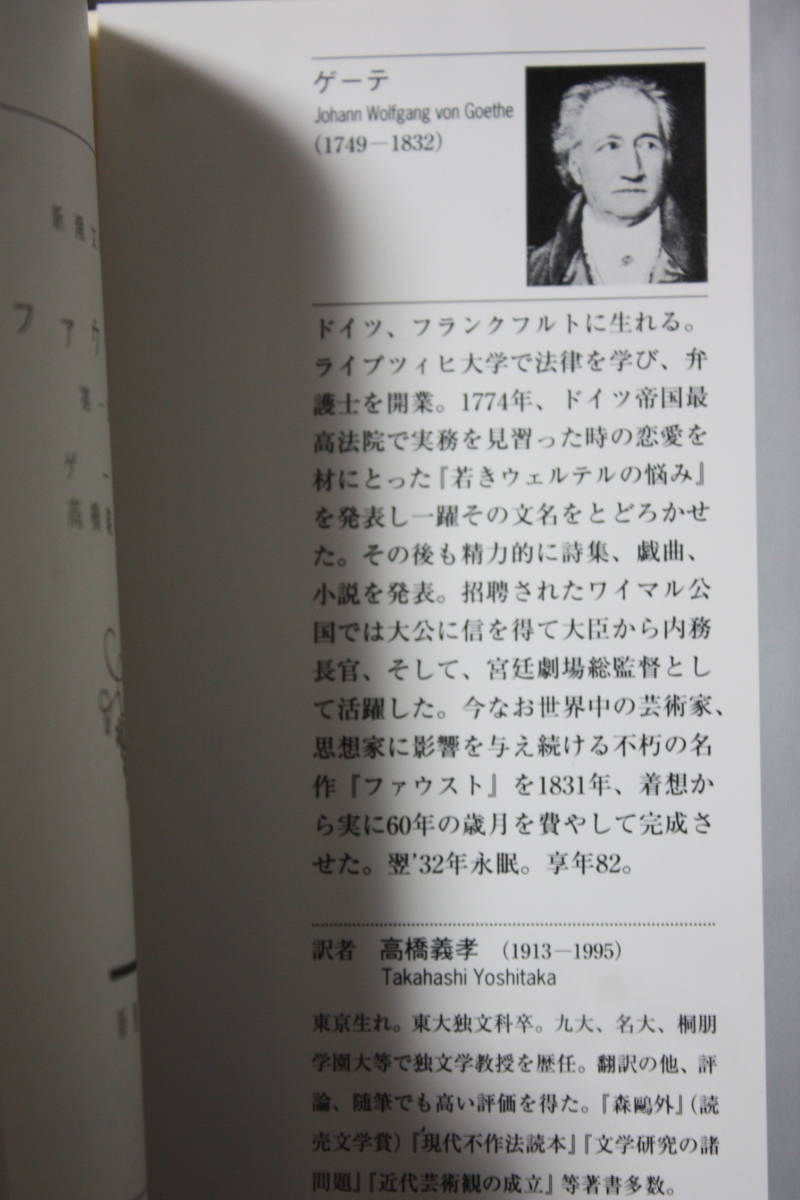 ゲーテ
Johann Wolfgang von Goethe
(1749―1832)
ドイツ、フランクフルトに生れる。
ライプツィヒ大学で法律を学び、弁
護士を開業。1774年、ドイツ帝国最
高法院で実務を見習った時の恋愛を
材にとった『若きウェルテルの悩み』
を発表し一躍その文名をとどろかせ
た。その後も精力的に詩集、戯曲、
小説を発表。招聘されたワイマル公
国では大公に信を得て大臣から内務
長官、そして、宮廷劇場総監督とし
て活躍した。今なお世界中の芸術家、
思想家に影響を与え続ける不朽の名
作『ファウスト』を1831年、着想か
ら実に60年の歳月を費やして完成さ
せた。翌'32年永眠。享年82。
訳者 高橋義孝 (1913―1995)
Takahashi Yoshitaka
東京生れ。東大独文科卒。九大、名大、桐朋
学園大等で独文学教授を歴任。翻訳の他、評
論、随筆でも高い評価を得た。『森鷗外』(読
売文学賞)『現代不作法読本』『文学研究の諸
問題』『近代芸術観の成立』等著書多数。
新潮文
ファウ
第一
ゲー
高橋義